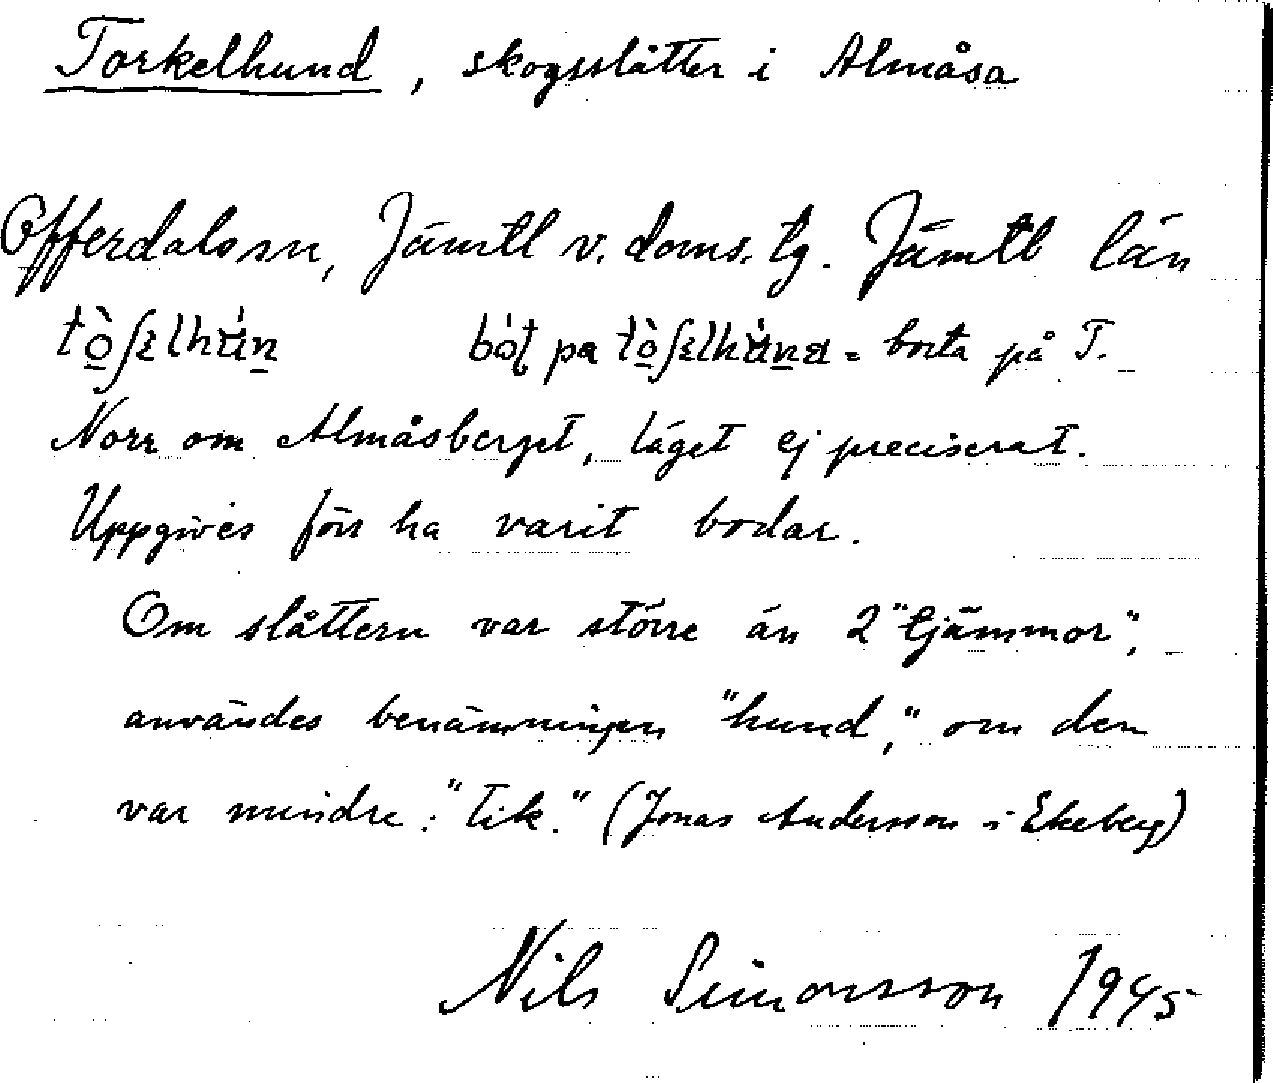 Torkelhund, skogsslåtter i Almåsa
Offerdals sn, Jämtl v. doms. tg. Jämtl län
bort på T.
Norr om Almåsberget, läget ej preciserat.
Uppgives förr ha varit bodar.
Om slåttern var större än 2 "tjämmor",
användes benämningen "hund," om den
var mindre: "tik." (Jonas Andersson i Ekeberg)
Nils Simonsson 1945